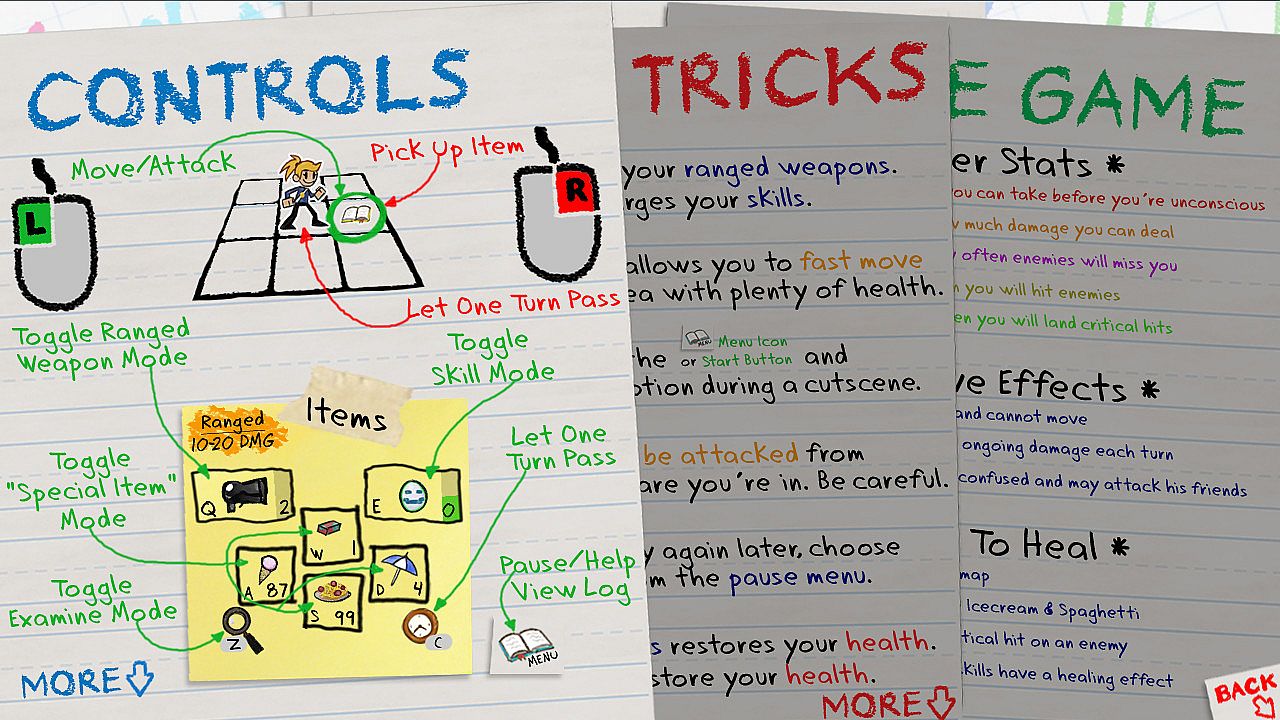 CONTROLS
Move/Attack
Pick Up Item
L
R
Let One Turn Pass
Toggle Ranged
Weapon Mode
Toggle
Skill Mode
Items
Ranged
10-20 DMG
Let One
Turn Pass
Toggle
"Special Item"
Mode
Q 2
E 0
W 1
A 87
D 4
S 99
Toggle
Examine Mode
Z
C
Pause/Help
View Log
MENU
MORE
TRICKS
your ranged weapons.
rges your skills.
allows you to fast move
ea with plenty of health.
Menu Icon
he or Start Button and
otion during a cutscene.
be attacked from
are you're in. Be careful.
y again later, choose
m the pause menu.
s restores your health.
store your health.
MORE
E GAME
er Stats *
ou can take before you're unconscious
w much damage you can deal
y often enemies will miss you
n you will hit enemies
en you will land critical hits
ve Effects *
and cannot move
ongoing damage each turn
confused and may attack his friends
To Heal *
map
Icecream & Spaghetti
tical hit on an enemy
kills have a healing effect
BACK